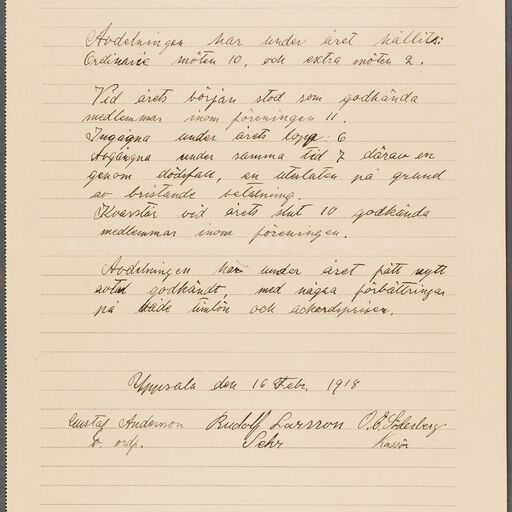 Avdelningen har under året hållits:
Ordinarie möten 10, och extra möten 2.
Vid årets början stod som godkända
medlemmar inom föreningen 11.
Ingågna under årets lopp: 6
Avgångna under samma tid 7 därav en
genom dödsfall, en utesluten på grund
av bristande betalning.
Kvarstår vid årets slut 10 godkända
medlemmar inom föreningen.
Avdelningen har under året fått nytt
avtal godkändt, med några förbättringar
på både timlön och ackordsprisen.
Uppsala den 16 Febr. 1918
Gustaf Andersson Rudolf Larsson O.E. Söderberg
v. ordf. Sekr Kassör